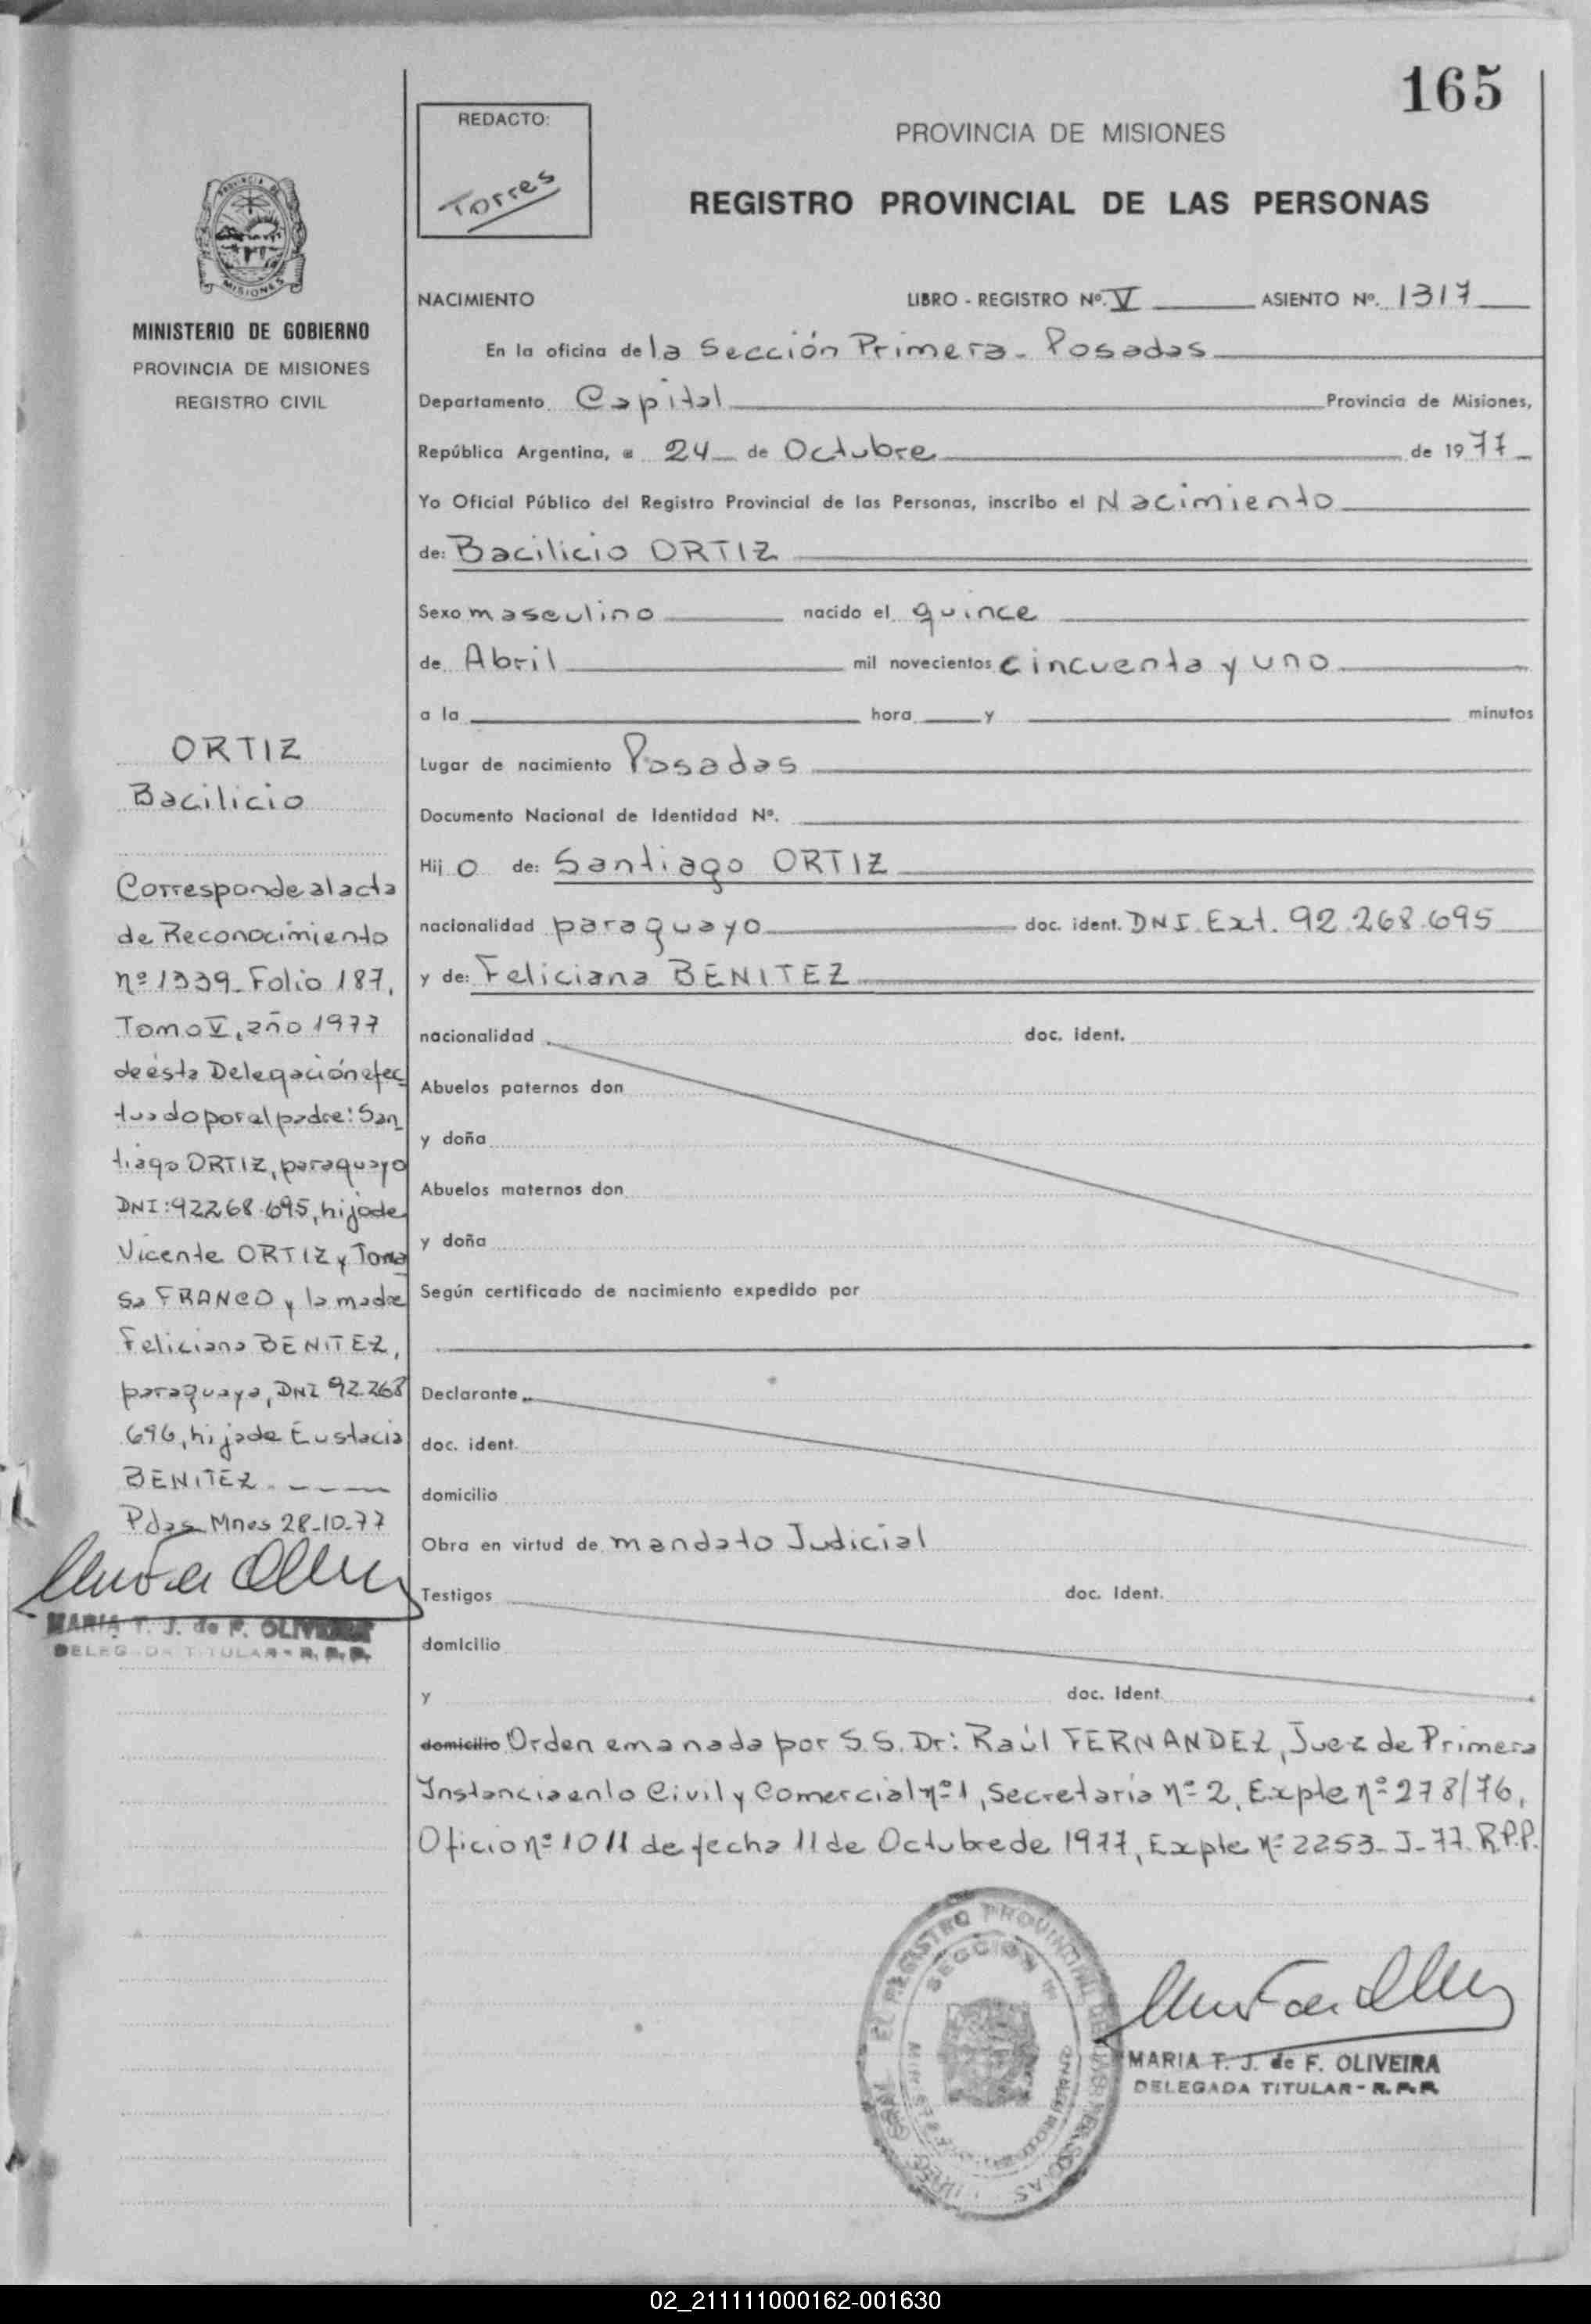 165
REDACTO:
Torres
PROVINCIA DE MISIONES
REGISTRO PROVINCIAL DE LAS PERSONAS
MISIONES
MINISTERIO DE GOBIERNO
PROVINCIA DE MISIONES
REGISTRO CIVIL
NACIMIENTO LIBRO - REGISTRO Nº. V ASIENTO Nº. 1317
En la oficina de la Sección Primera - Posadas
Departamento Capital Provincia de Misiones,
República Argentina, a 24 de Octubre de 1977
Yo Oficial Público del Registro Provincial de las Personas, inscribo el Nacimiento
de: Bacilicio ORTIZ
Sexo masculino nacido el quince
de Abril mil novecientos cincuenta y uno
a la hora y minutos
Lugar de nacimiento Posadas
Documento Nacional de Identidad Nº.
Hijo de: Santiago ORTIZ
nacionalidad paraguayo doc. ident. DNI. Ext. 92.268.695
y de: Feliciana BENITEZ
nacionalidad doc. ident.
Abuelos paternos don
y doña
Abuelos maternos don
y doña
Según certificado de nacimiento expedido por
Declarante
doc. ident.
domicilio
Obra en virtud de mandato Judicial
Testigos doc. ident.
domicilio
y doc. ident.
domicilio Orden emanada por S.S. Dr: Raúl FERNANDEZ, Juez de Primera
Instancia en lo Civil y Comercial nº 1, Secretaría nº 2, Expte nº 278/76,
Oficio nº 1011 de fecha 11 de Octubre de 1977, Expte nº 2253-J-77. R.P.P.
ORTIZ
Bacilicio
Corresponde al acta
de Reconocimiento
nº 1339 Folio 187,
Tomo V, año 1977
de ésta Delegación efec
tuado por el padre: San
tiago ORTIZ, paraguayo
DNI: 92268.695, hijo de
Vicente ORTIZ y Toma
sa FRANCO y la madre
Feliciana BENITEZ,
paraguaya, DNI 92.268
696, hija de Eustacia
BENITEZ
Pdas Mnes 28-10-77
MARIA T. J. de F. OLIVEIRA
DELEGADA TITULAR - R. P. P.
EL REGISTRO PROVINCIAL DE LAS PERSONAS
SECCION 1ª
MARIA T. J. de F. OLIVEIRA
DELEGADA TITULAR - R. P. P.
02_211111000162-001630